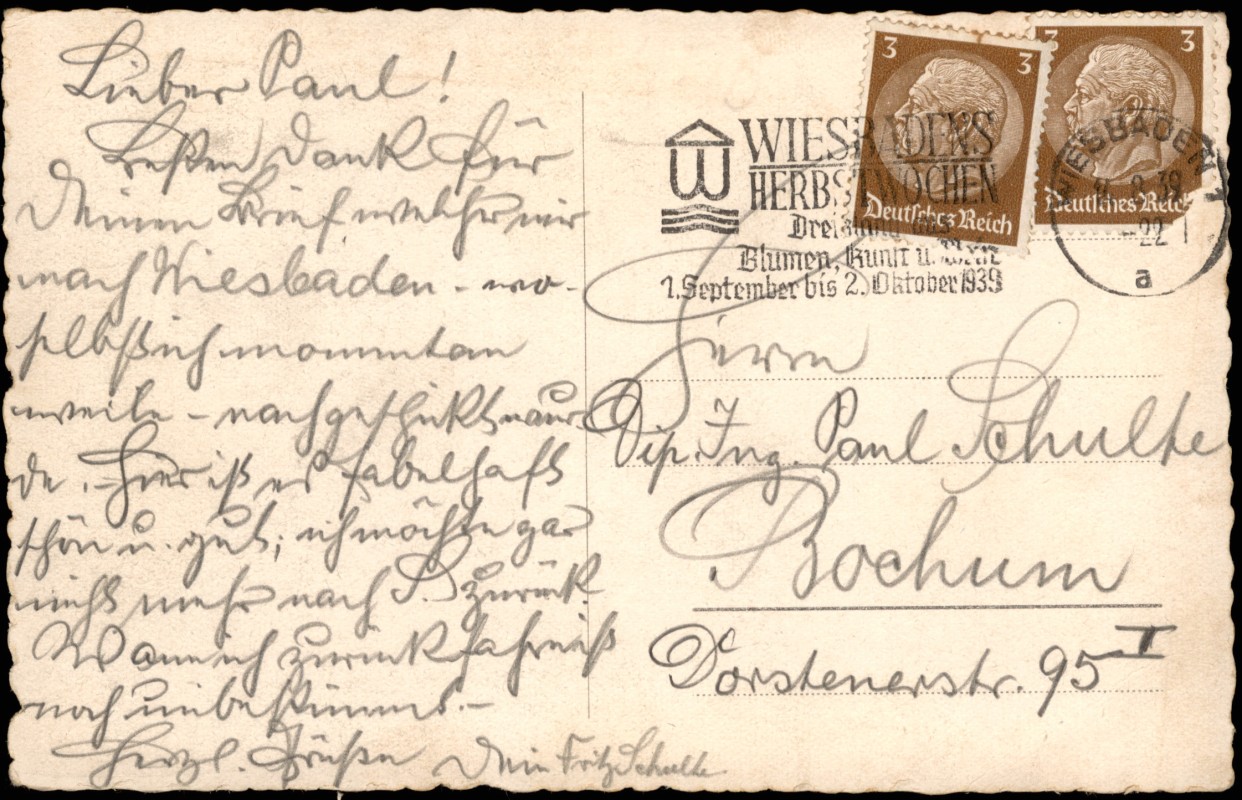 Lieber Paul!
Besten Dank für
Deinen Brief welcher mir
nach Wiesbaden - wo-
selbst ich momentan
weile - nachgeschickt wur
de. Hier ist es fabelhaft
schön u. gut; ich möchte gar
nicht mehr nach D. zurück.
Wann ich zurückfahre ist
noch unbestimmt.-
Herzl. Grüßen Dein Fritz Schulte
3 3
Deutsches Reich
3 3
Deutsches Reich
W WIESBADENS
HERBSTWOCHEN
Dreiklang aus
Blumen, Kunst u. Wein
1. September bis 2. Oktober 1939
WIESBADEN 1
-22
a
Herrn
Dip. Ing. Paul Schulte
Bochum
Dorstenerstr. 95 II